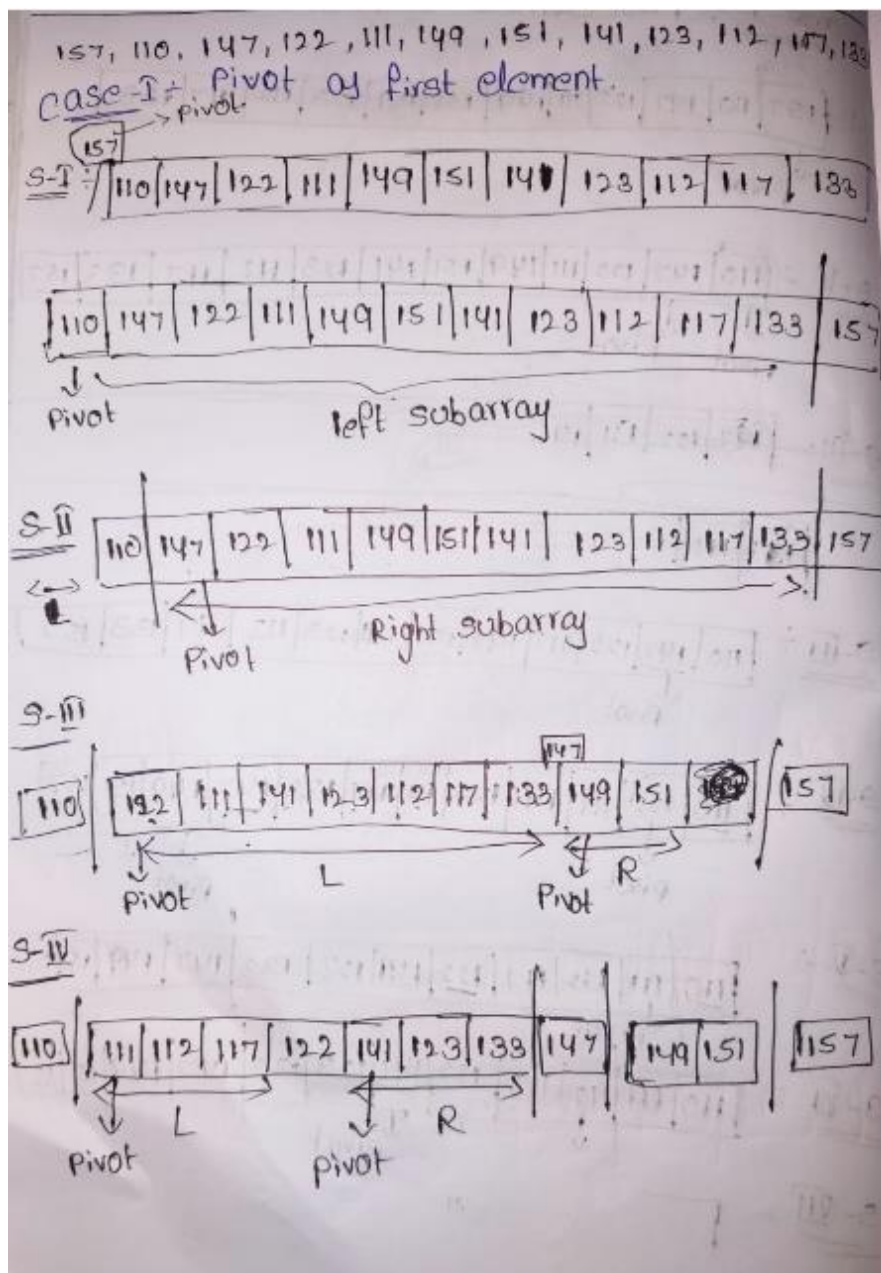 157, 110, 147, 122, 111, 149, 151, 141, 123, 112, 117, 133
Case-I :- Pivot as first element.
157 → pivot.
S-I :- 110 147 122 111 149 151 141 123 112 117 133
110 147 122 111 149 151 141 123 112 117 133 157
Pivot left subarray
S-II 110 147 122 111 149 151 141 123 112 117 133 157
L Right subarray
Pivot
S-III
147
110 122 111 141 123 112 117 133 149 151 157
L R
Pivot Pivot
S-IV
110 111 112 117 122 141 123 133 147 149 151 157
L R
Pivot pivot